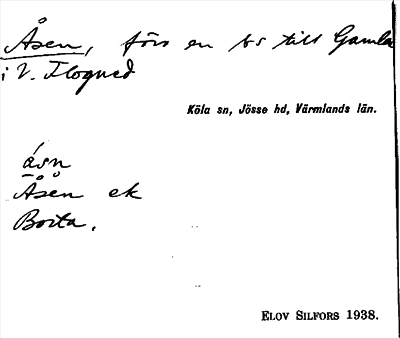 Åsen, förr en bs till Gamla
i V. Flogned
Köla sn, Jösse hd, Värmlands län.
åsn
Åsen ek
Borta.
ELOV SILFORS 1938.